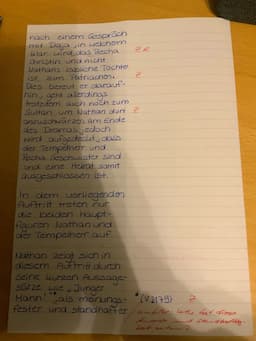 nach einem Gespräch
mit Daja, in welchem
klar wird, dass Recha
Z R
Christin und nicht
Nathans leibliche Tochter
ist, zum Patriachen.
Z
Dies bereut er darauf-
hin, geht allerdings
trotzdem auch noch zum
Sultan, um Nathan dort
Z
anzuschwärzen. Am Ende
des Dramas jedoch
wird aufgedeckt, dass
der Tempelherr und
Recha Geschwister sind
und eine Heirat somit
ausgeschlossen ist.
In dem vorliegenden
Auftritt treten nur
die beiden Haupt-
figuren Nathan und
der Tempelherr auf.
Nathan zeigt sich in
diesem Auftritt durch
seine kurzen Aussage-
sätze wie „Junger
Mann!" als meinungs-
Z
fester und standhafter